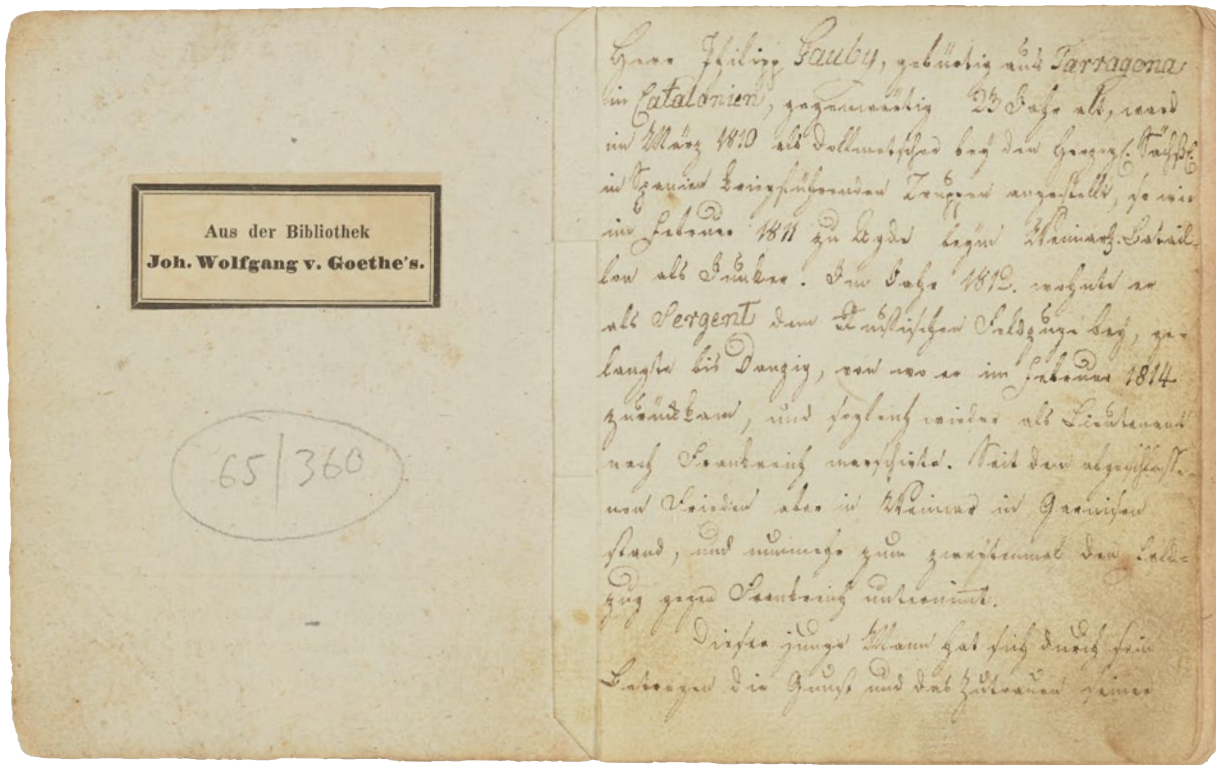 Aus der Bibliothek
Joh. Wolfgang v. Goethe's.
65/360
Herr Philipp Gauby, gebürtig aus Tarragona
in Catalonien, gegenwärtig 23 Jahr alt, ward
im März 1810 als Dollmetscher bey den Herzogl. Sächs.
in Spanien kriegführenden Truppen angestellt, so wie
im Februar 1811 zu Agde beym Weimar. Batail-
lon als Junker. Im Jahr 1812. wohnte er
als Sergent dem Russischen Feldzuge bey, ge-
langte bis Danzig, von wo er im Februar 1814
zurückkam, und sogleich wieder als Lieutenant
nach Frankreich marschirte. Seit dem abgeschlosse-
nen Frieden aber in Weimar in Garnison
stand, und nunmehr zum zweytenmal den Feld-
zug gegen Frankreich unternimt.
Dieser junge Mann hat sich durch sein
Betragen die Gunst und das Zutrauen seiner